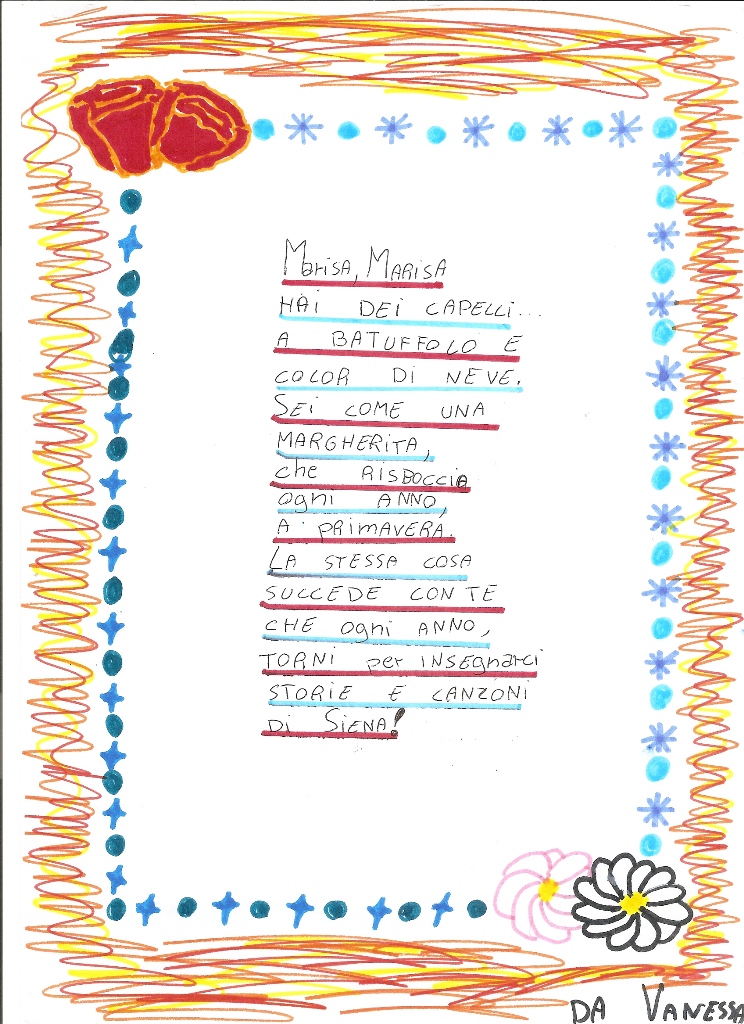 Marisa, MARISA
HAI DEI CAPELLI...
A BATUFFOLO E
COLOR DI NEVE.
SEI COME UNA
MARGHERITA,
che RISBOCCIA
ogni ANNO,
A PRIMAVERA.
LA STESSA COSA
SUCCEDE CON TE
CHE ogni ANNO,
TORNI per INSEgnarci
STORIE E CANZONI
DI SIENA!
DA VANESSA